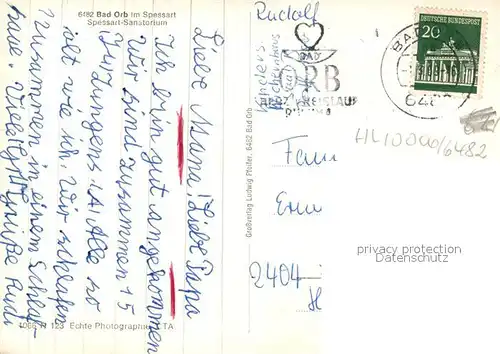 6482 Bad Orb im Spessart
Spessart-Sanatorium
Liebe Mama! Liebe Papa
Ich bin gut angekommen
wir sind zusammen 15
Jungens (A) Alle so
alt wie ich wir schlafen
zusammen in einem Schlaf-
Viele Grüße Rudi
N 123 Echte Photographie
Großverlag Ludwig Pfeifer, 6482 Bad Orb
Rudolf
BAD
ORB
HERZ KREISLAUF
BAD
64
DEUTSCHE BUNDESPOST
20
HL10000/6482
Fam
2404
privacy protection
privacy protection